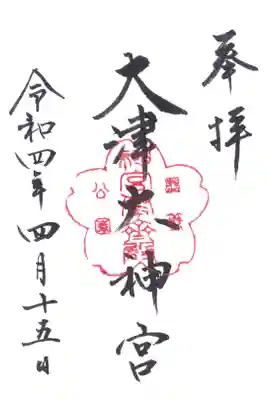 奉拝
大津大神宮
令和四年四月十五日